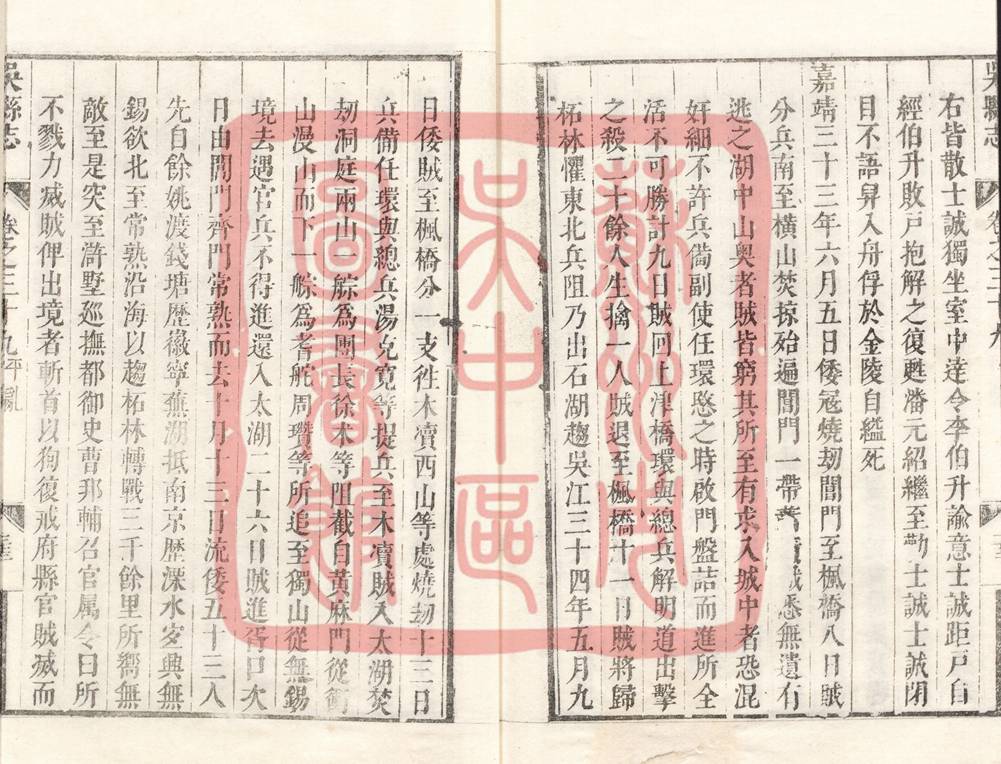 吳縣志
卷之三十九
右皆散士誠獨坐室中達令李伯升諭意士誠距戸自
經伯升敗戸抱解之復甦潘元紹繼至勸士誠士誠閉
目不語舁入舟俘於金陵自縊死
嘉靖三十三年六月五日倭冦燒刼閶門至楓橋八日賊
分兵南至橫山焚掠殆遍閶門一帶悉無遺有
逃之湖中山奥者賊皆窮其所至有求入城中者恐混
奸細不許兵備副使任環愍之時啟門盤詰而進所全
活不可勝計九日賊囘上津橋環與總兵解明道出擊
之殺二十餘人生擒一人賊退至楓橋十一日賊將歸
柘林懼東北兵阻乃出石湖趨吳江三十四年五月九
日倭賊至楓橋分一支徃木凟西山等處燒刼十三日
兵備任環與總兵湯克寛等提兵至木凟賊入太湖焚
刼洞庭兩山一䑸爲團長徐术等阻截自黃麻門從衝
山漫山而下一䑸爲耆舵周瓚等所追至獨山從無錫
境去遇官兵不得進還入太湖二十六日賊進胥口次
日由閶門齊門常熟而去十月十三日流倭五十三人
先自餘姚渡錢塘歴徽寧蕪湖抵南京歴溧水宐興無
錫欲北至常熟沿海以趨柘林轉戰三千餘里所嚮無
敵至是突至滸墅巡撫都御史曹邦輔召官属令曰所
不戮力㓕賊俾出境者斬首以狥復戒府縣官賊㓕而
吳縣志
卷之三十九 平亂
蘇州市
吳中區
圖書館